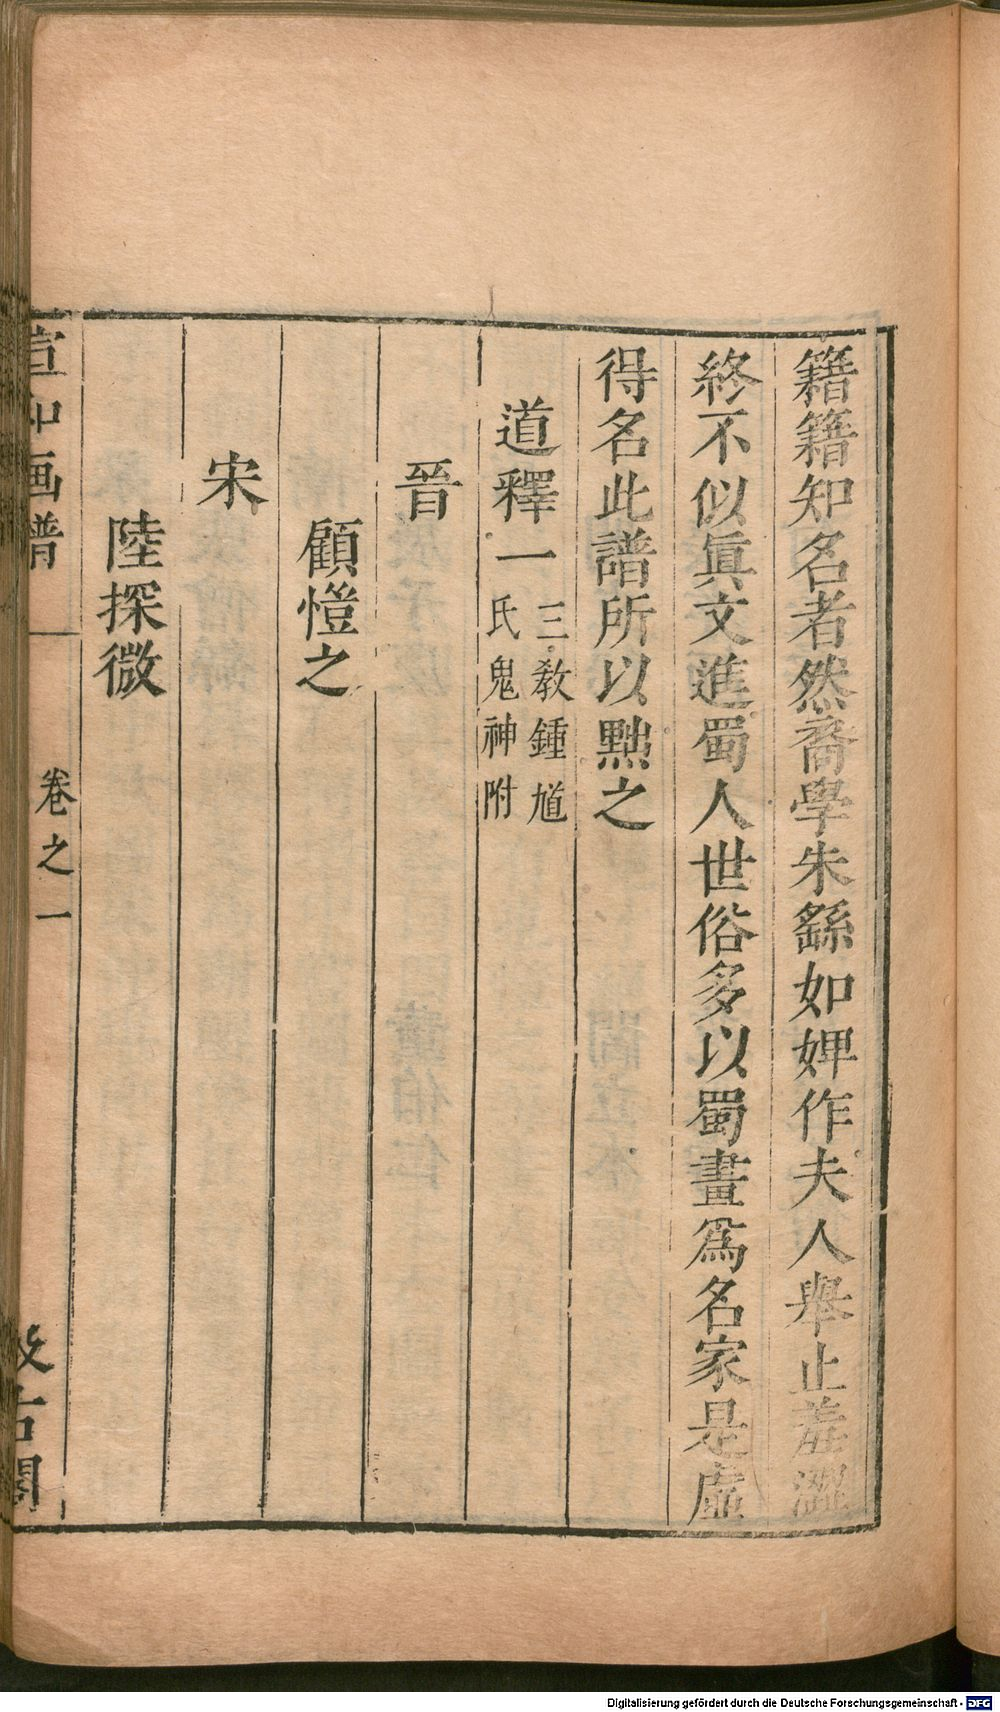 籍籍知名者然裔學朱繇如婢作夫人舉止羞澀
終不似眞文進蜀人世俗多以蜀畫爲名家是虛
得名此譜所以黜之
道釋一 三教鍾馗氏鬼神附
晉
顧愷之
宋
陸探微
宣和画譜 卷之一 汲古閣
Digitalisierung gefördert durch die Deutsche Forschungsgemeinschaft - DFG